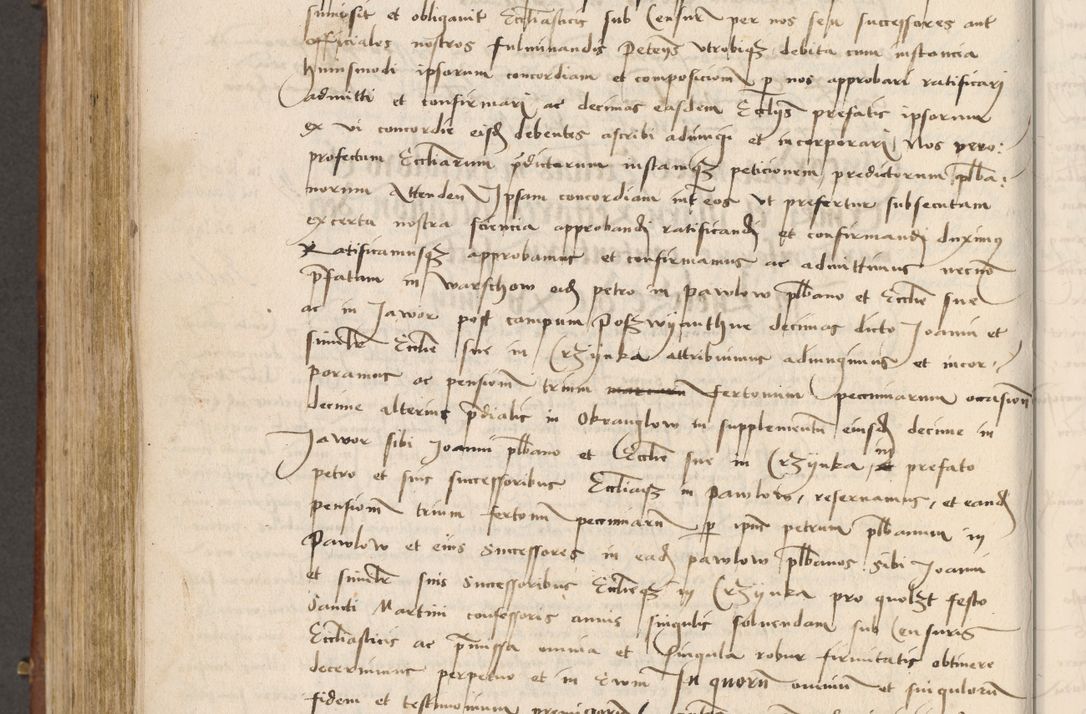 summisit et obligavit Ecclīasticis sub Censur per nos seu successores aut
officiales nostros fulminandis Peteñs utrobiqz debita cum instancia
huiusmodi ipsorum concordiam et composicionē p nos approbari ratificari
admitti et confirmari ac decimas easdem Ecclijs prefatis ipsorum
ex vi concordie eisd debentes ascribi adiungi et incorporari Nos vero:
profectum Eccliarum pdictarum instamqz peticionem predictorum plba:
norum Attenden Ipsam concordiam int eos ut prefertur subsecutam
ex certa nostra sciencia approband ratificand et confirmand duximus
Ratificamusqz approbamus et confirmamus ac admittimus necnō
pfatam in Warschow eid petro in pawlow plbano et Ecclie sue
ac in Jawor post campum dictas decimas dicto Joanni et
similr Ecclie sue in Crzijnka attribuimus adiungimus et incor:
poramus ac pensionē trium marcarū fertonum pecuniarum occasionē
decime alterius pdialis in Okranglow in supplementū eiusd decime in
Jawor sibi Joanni plbano et Ecclie sue in Crzijnka in prefato
petro et suis successoribus Eccliaqz in pawlow, reservamus, et eand
pensionē trium fertonū pecuniarū p ipm petrum plbanum in
Pawlow et eius Successores in ead pawlow plbanos sibi Joanni
et similr suis Successoribus Ecclieqz in Crzijnka pro quolzt festo
Sancti Martini confessoris annis singulis solvendam sub Censuris
Eccliasticis ac pmissa omnia et singula robur firmitatis obtinere
decernimus perpetuo et in Evum In quorū omnium et singulorū
fidem et testimonium premissorū